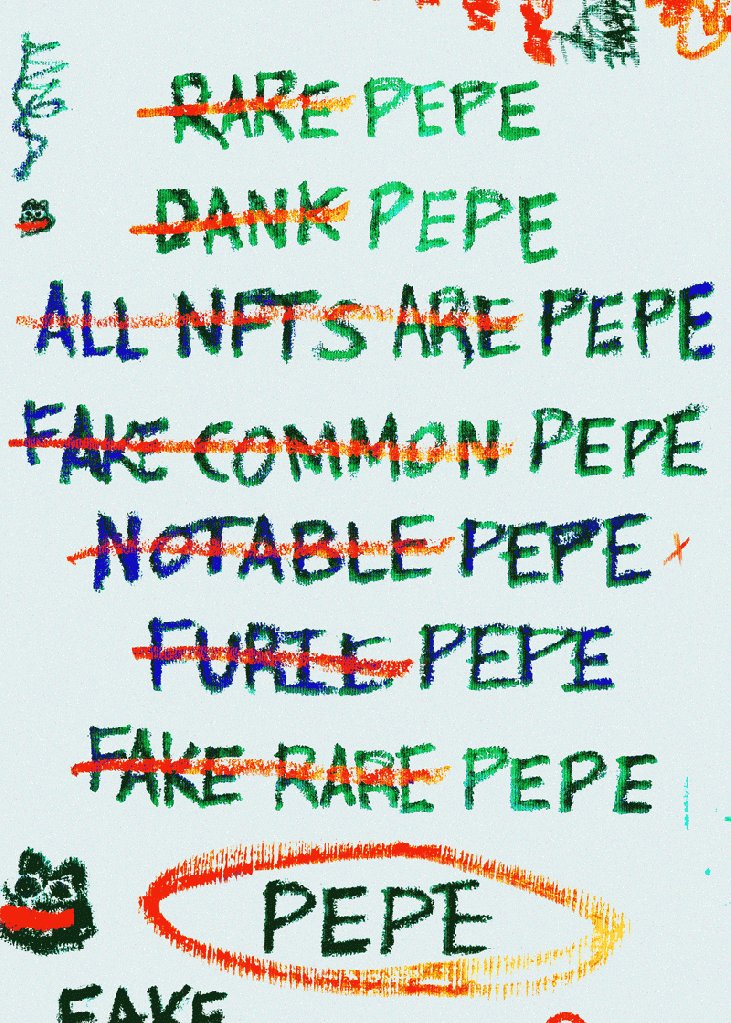 RARE PEPE
DANK PEPE
ALL NFTS ARE PEPE
FAKE COMMON PEPE
NOTABLE PEPE
FURIE PEPE
FAKE RARE PEPE
PEPE
FAKE